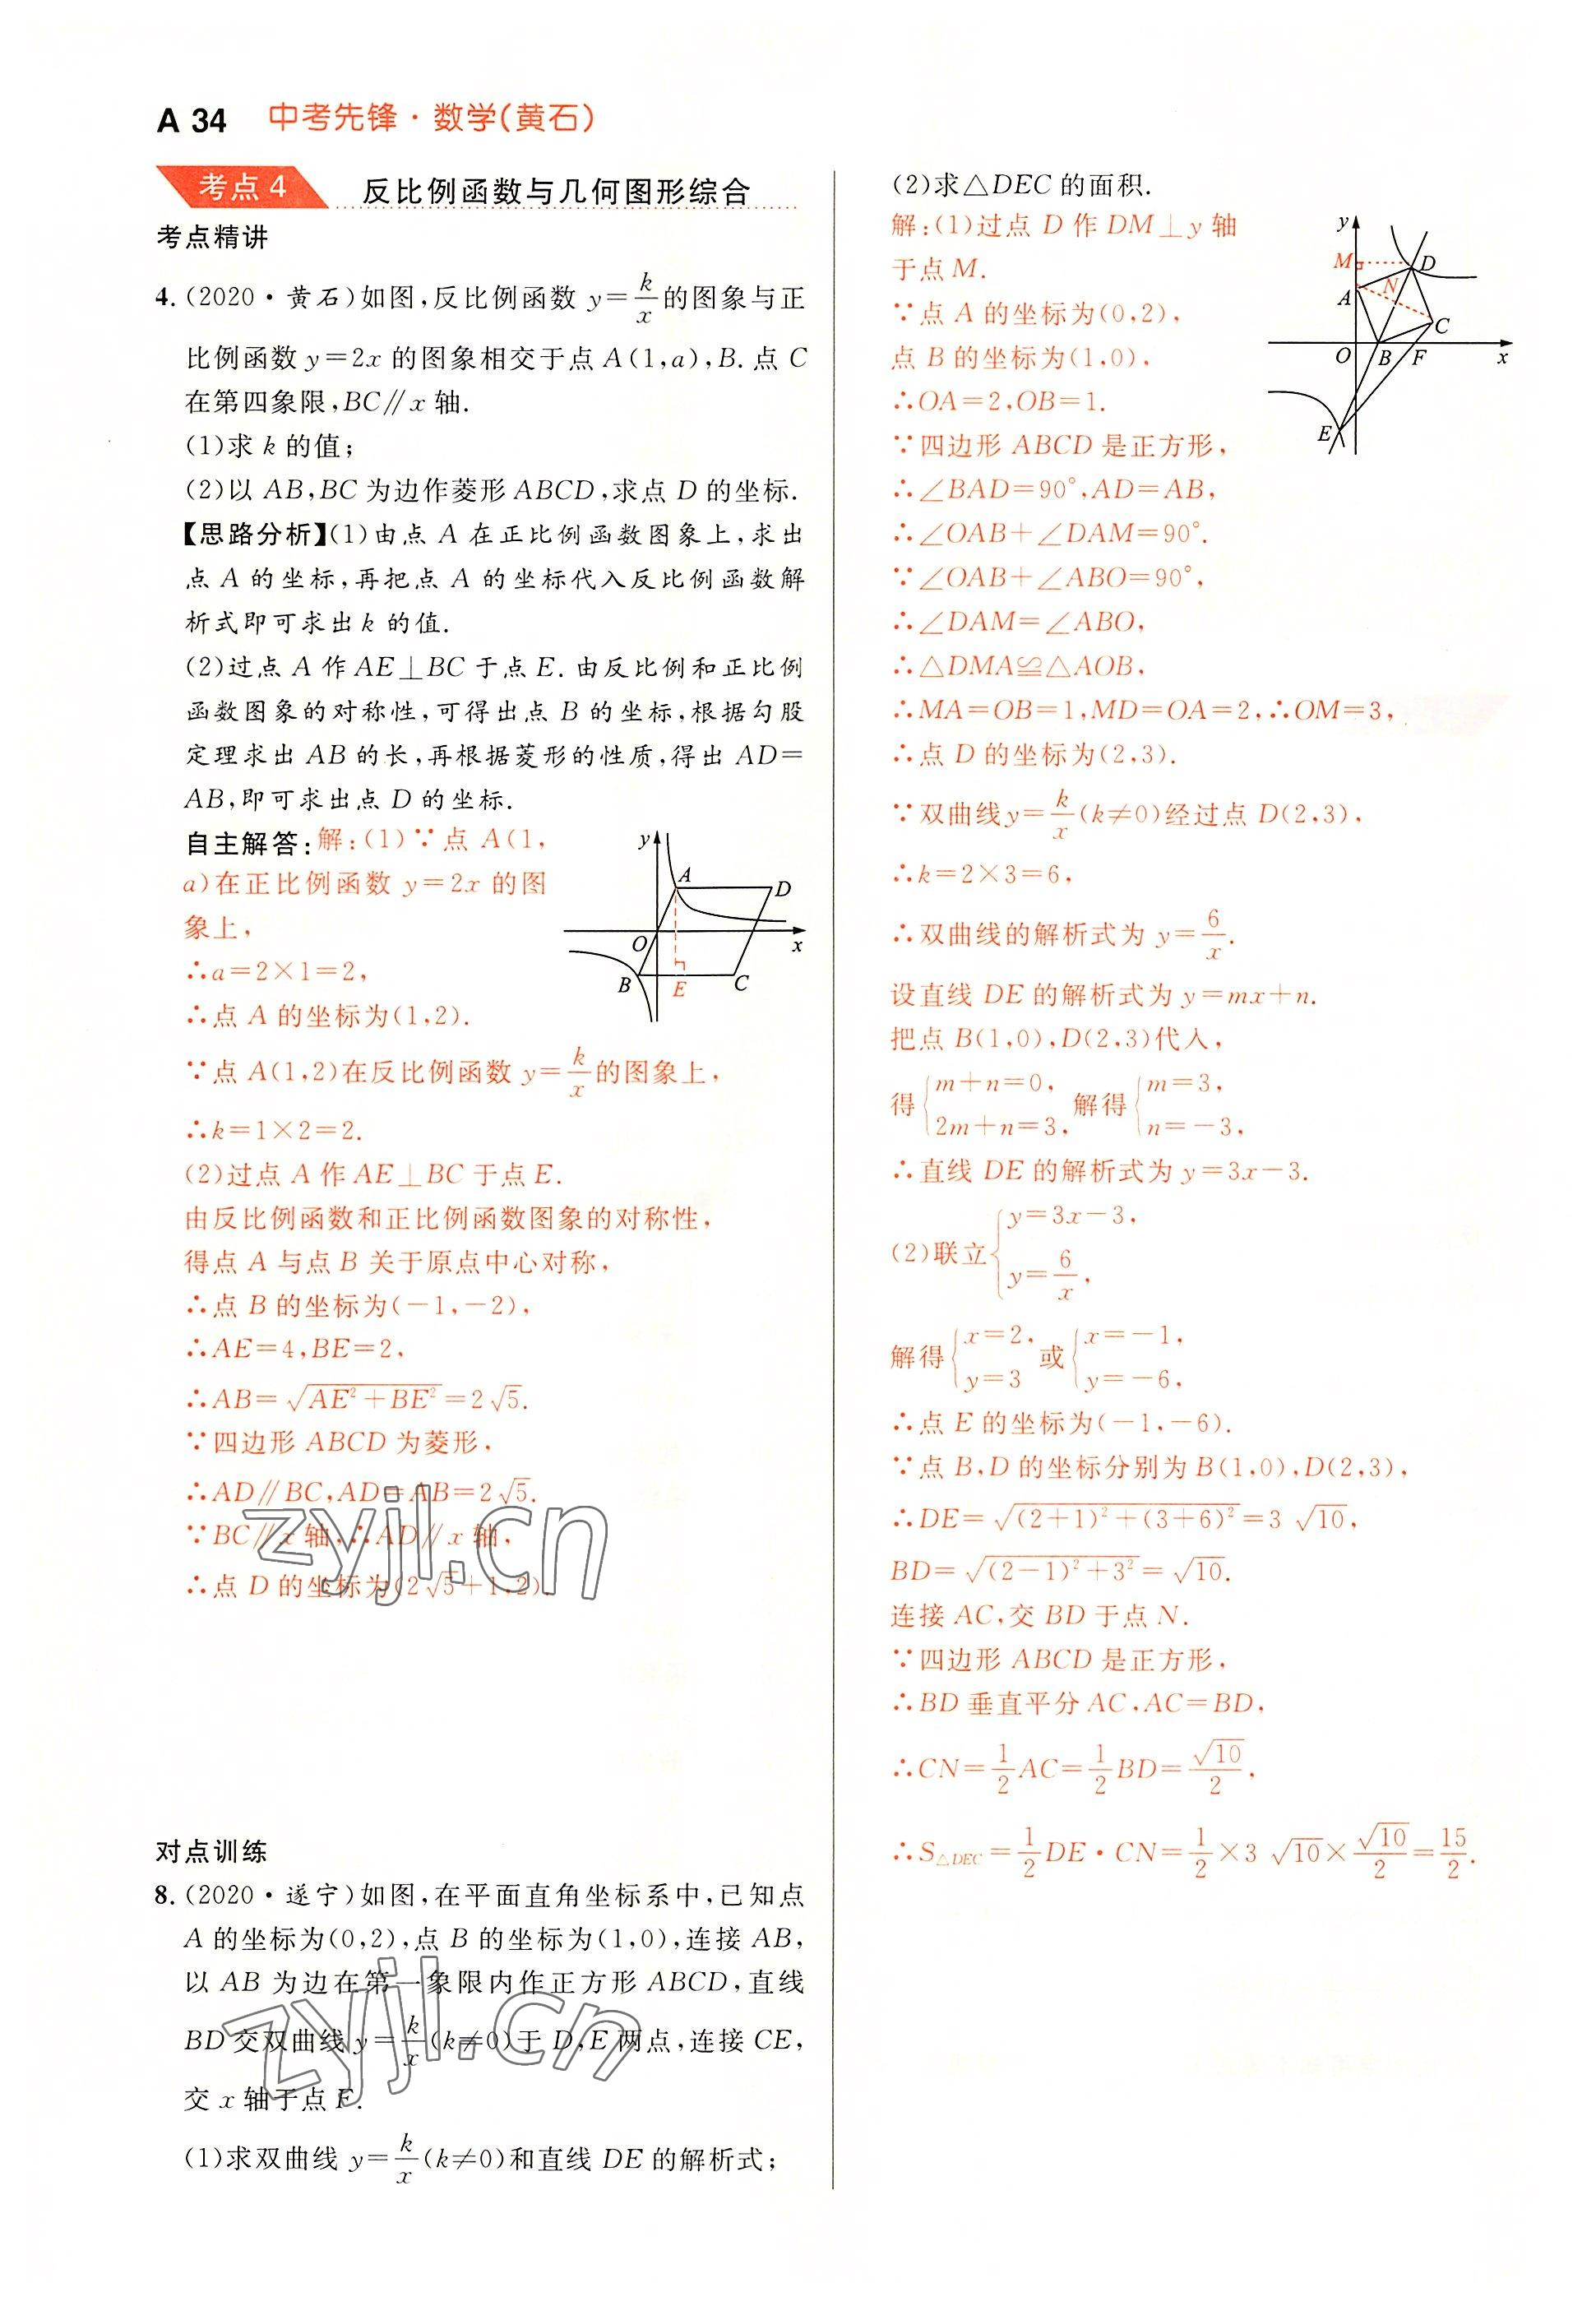 A 34 中考先锋·数学(黄石)
考点 4 反比例函数与几何图形综合
考点精讲
4. (2020·黄石)如图,反比例函数 y=k/x 的图象与正
比例函数 y=2x 的图象相交于点 A(1,a),B. 点 C
在第四象限,BC∥x 轴.
(1)求 k 的值;
(2)以 AB,BC 为边作菱形 ABCD,求点 D 的坐标.
【思路分析】(1)由点 A 在正比例函数图象上,求出
点 A 的坐标,再把点 A 的坐标代入反比例函数解
析式即可求出 k 的值.
(2)过点 A 作 AE⊥BC 于点 E. 由反比例和正比例
函数图象的对称性,可得出点 B 的坐标,根据勾股
定理求出 AB 的长,再根据菱形的性质,得出 AD=
AB,即可求出点 D 的坐标.
自主解答:解:(1)∵点 A(1,
a)在正比例函数 y=2x 的图
象上,
∴a=2×1=2,
∴点 A 的坐标为(1,2).
y
A
D
O
x
B
E
C
∵点 A(1,2)在反比例函数 y=k/x 的图象上,
∴k=1×2=2.
(2)过点 A 作 AE⊥BC 于点 E.
由反比例函数和正比例函数图象的对称性,
得点 A 与点 B 关于原点中心对称,
∴点 B 的坐标为(-1,-2),
∴AE=4,BE=2,
∴AB=√(AE²+BE²)=2√5.
∵四边形 ABCD 为菱形,
∴AD∥BC,AD=AB=2√5.
∵BC∥x 轴,∴AD∥x 轴,
∴点 D 的坐标为(2√5+1,2).
zyjl.cn
对点训练
8. (2020·遂宁)如图,在平面直角坐标系中,已知点
A 的坐标为(0,2),点 B 的坐标为(1,0),连接 AB,
以 AB 为边在第一象限内作正方形 ABCD,直线
BD 交双曲线 y=k/x(k≠0)于 D,E 两点,连接 CE,
交 x 轴于点 F.
(1)求双曲线 y=k/x(k≠0)和直线 DE 的解析式;
zyjl.cn
(2)求△DEC 的面积.
解:(1)过点 D 作 DM⊥y 轴
于点 M.
∵点 A 的坐标为(0,2),
点 B 的坐标为(1,0),
∴OA=2,OB=1.
∵四边形 ABCD 是正方形,
∴∠BAD=90°,AD=AB,
∴∠OAB+∠DAM=90°.
∵∠OAB+∠ABO=90°,
∴∠DAM=∠ABO,
∴△DMA≌△AOB,
∴MA=OB=1,MD=OA=2,∴OM=3,
∴点 D 的坐标为(2,3).
y
M
D
N
A
C
O
B
F
x
E
∵双曲线y=k/x(k≠0)经过点 D(2,3),
∴k=2×3=6,
∴双曲线的解析式为 y=6/x.
设直线 DE 的解析式为 y=mx+n.
把点 B(1,0),D(2,3)代入,
得{m+n=0, 2m+n=3, 解得{m=3, n=-3,
∴直线 DE 的解析式为 y=3x-3.
(2)联立{y=3x-3, y=6/x,
解得{x=2, y=3 或{x=-1, y=-6,
∴点 E 的坐标为(-1,-6).
∵点 B,D 的坐标分别为 B(1,0),D(2,3),
∴DE=√((2+1)²+(3+6)²)=3√10,
BD=√((2-1)²+3²)=√10.
连接 AC,交 BD 于点 N.
∵四边形 ABCD 是正方形,
∴BD 垂直平分 AC,AC=BD,
∴CN=1/2AC=1/2BD=√10/2,
∴S△DEC=1/2DE·CN=1/2×3√10×√10/2=15/2.